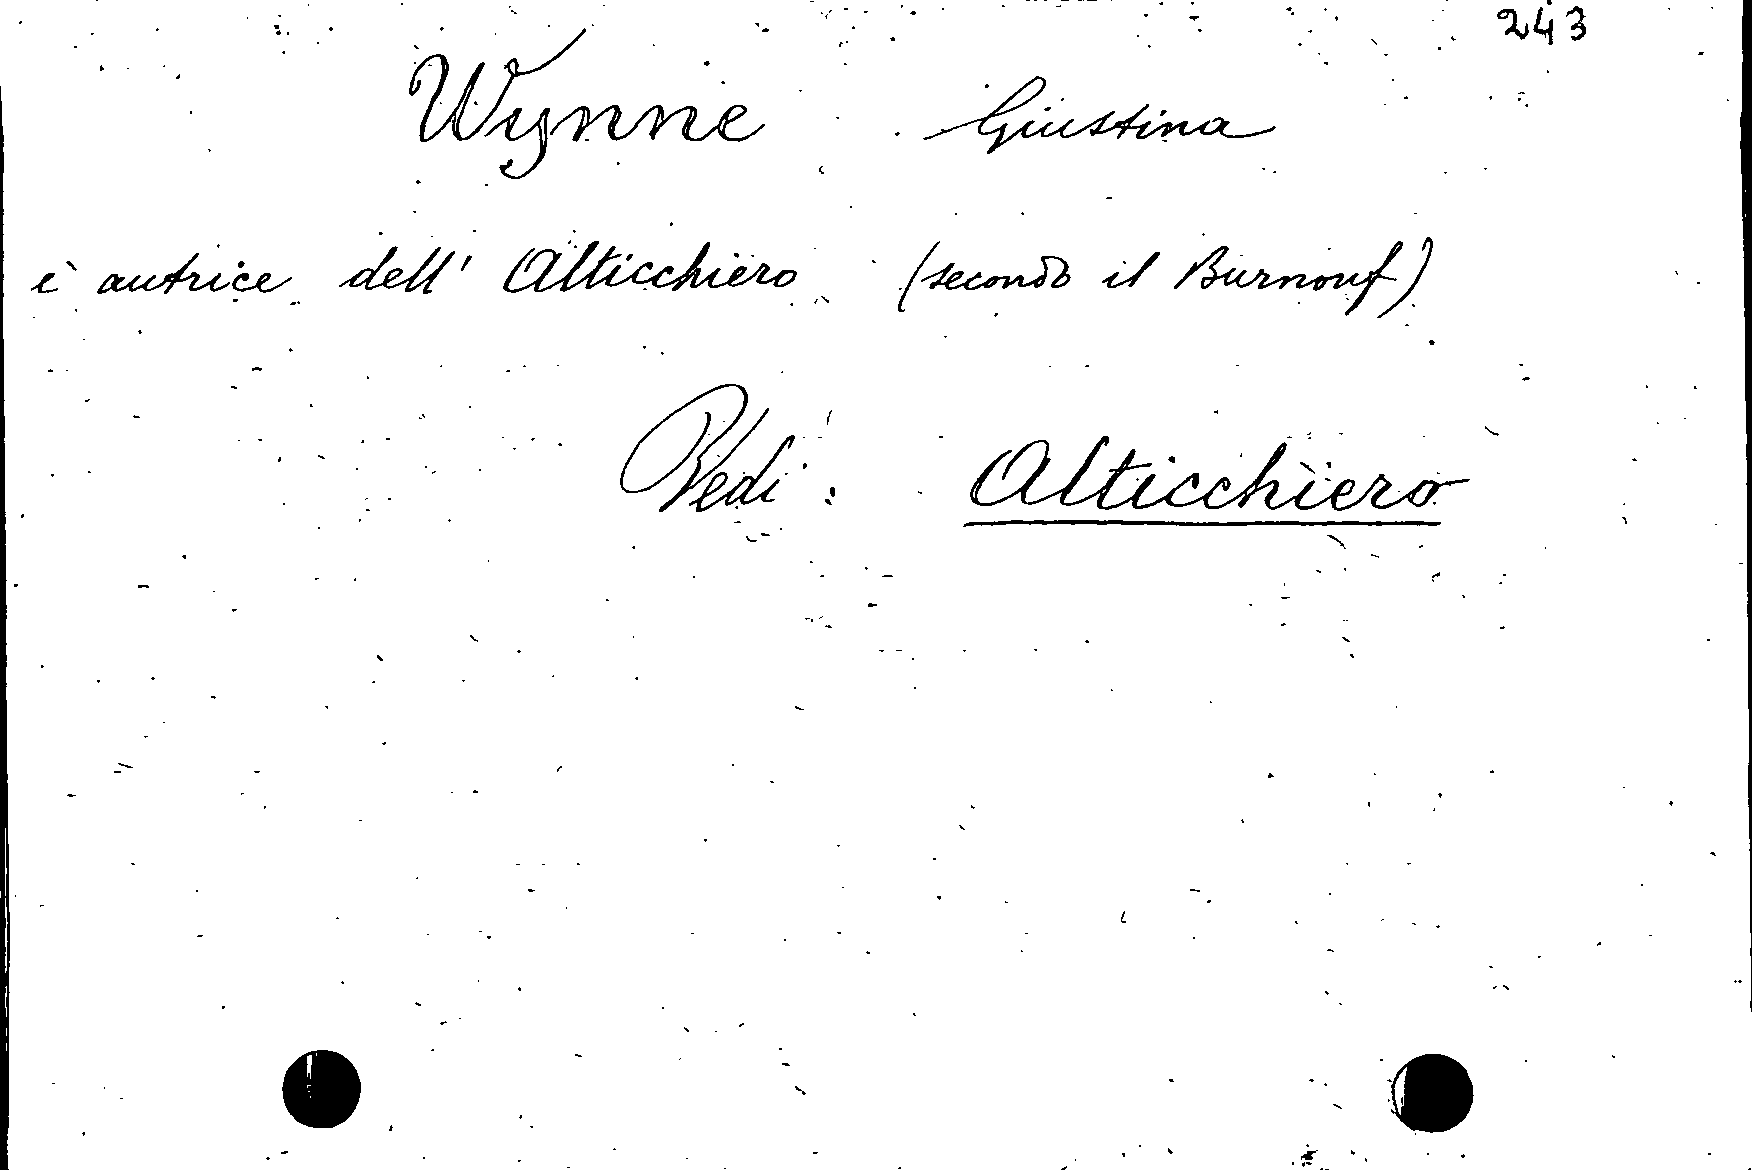 243
Wynne Giustina
è autrice dell' Alticchiero (secondo il Burnouf)
Vedi: Alticchiero